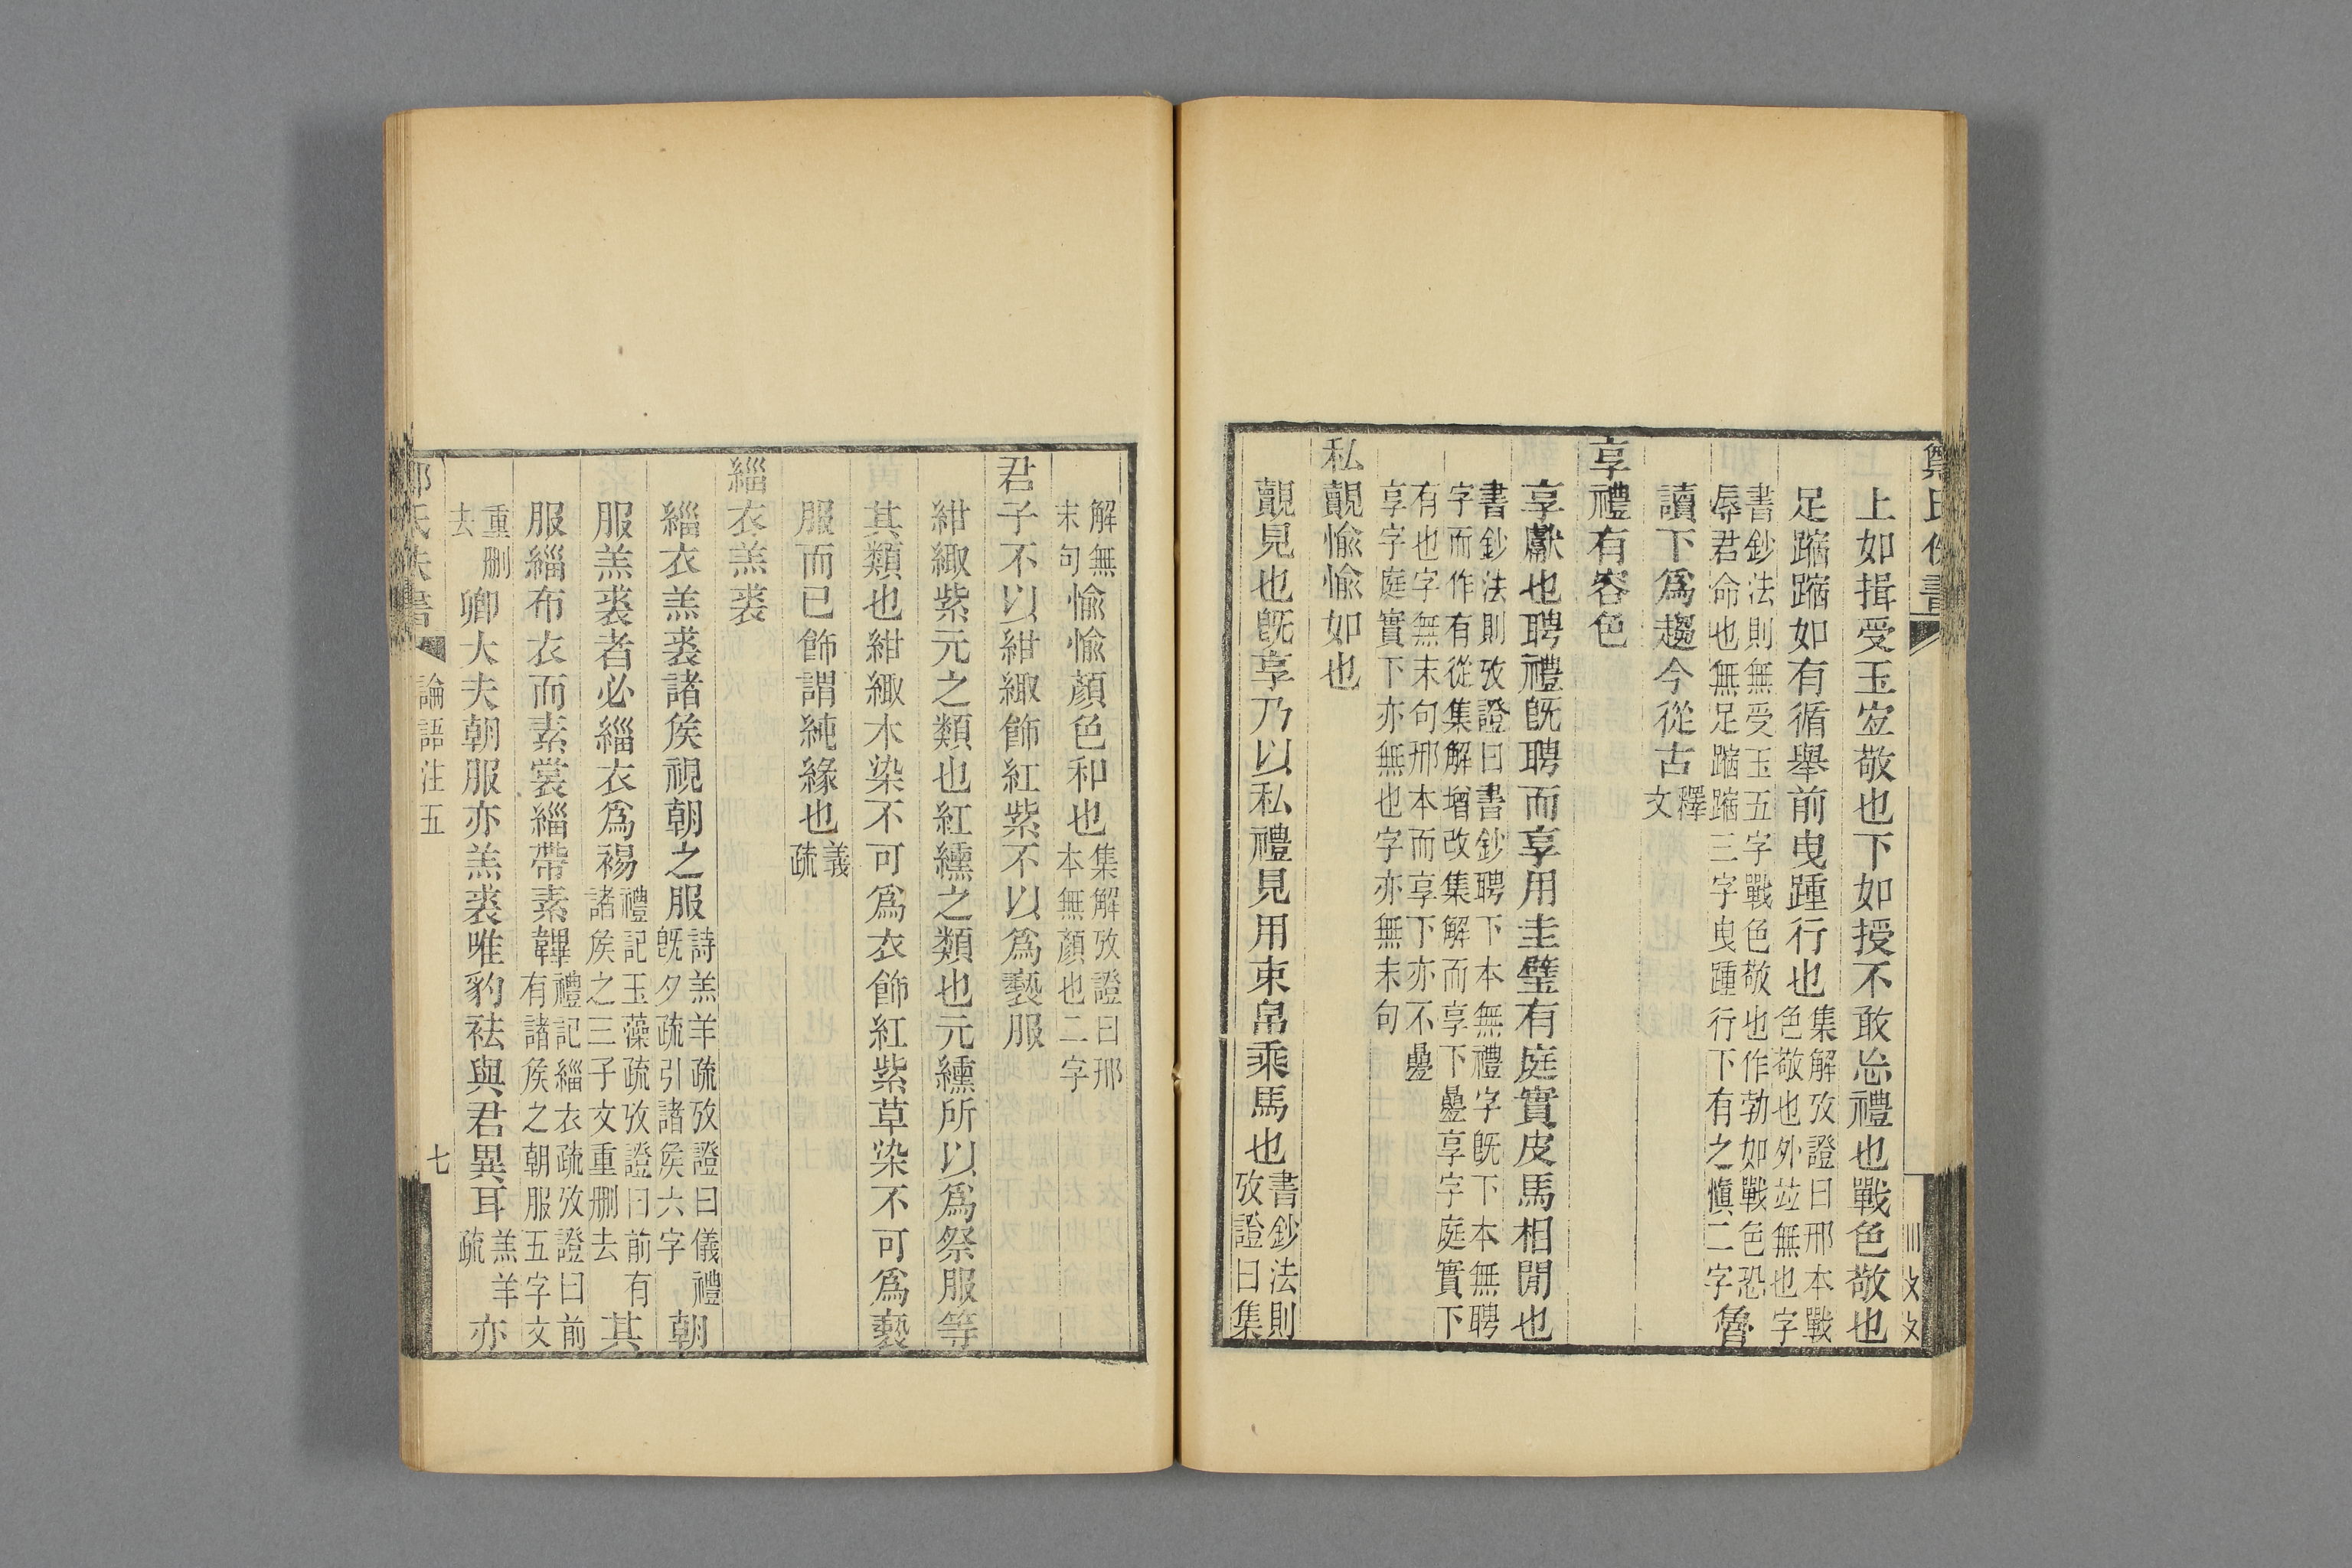 上如揖受玉宐敬也下如授不敢㤀禮也戰色敬也
足蹜蹜如有循舉前曳踵行也
集解攷證曰邢本戰
色敬也外竝無也字
書鈔法則無受玉五字戰色敬也作勃如戰色恐
辱君命也無足蹜蹜三字曳踵行下有之愼二字
魯
讀下爲趨今從古
釋
文
享禮有容色
享獻也聘禮旣聘而享用圭璧有庭實皮馬相閒也
書鈔法則攷證曰書鈔聘下本無禮字旣下本無聘
字而作有從集解增改集解而享下㬪享字庭實下
有也字無末句邢本而享下亦不㬪
享字庭實下亦無也字亦無末句
私覿愉愉如也
覿見也旣享乃以私禮見用束帛乘馬也
書鈔法則
攷證曰集
解無
末句
愉愉顏色和也
集解攷證曰邢
本無顏也二字
君子不以紺緅飾紅紫不以爲褻服
紺緅紫元之類也紅纁之類也元纁所以爲祭服等
其類也紺緅木染不可爲衣飾紅紫草染不可爲褻
服而已飾謂純緣也
義
疏
緇衣羔裘
緇衣羔裘諸矦視朝之服
詩羔羊疏攷證曰儀禮
旣夕疏引諸矦六字
朝
服羔裘者必緇衣爲裼
禮記玉藻疏攷證曰前有
諸矦之三子文重刪去
其
服緇布衣而素裳緇帶素韠
禮記緇衣疏攷證曰前
有諸矦之朝服五字文
重刪
去
卿大夫朝服亦羔裘唯豹袪與君異耳
羔羊
疏
亦
論語注五
七